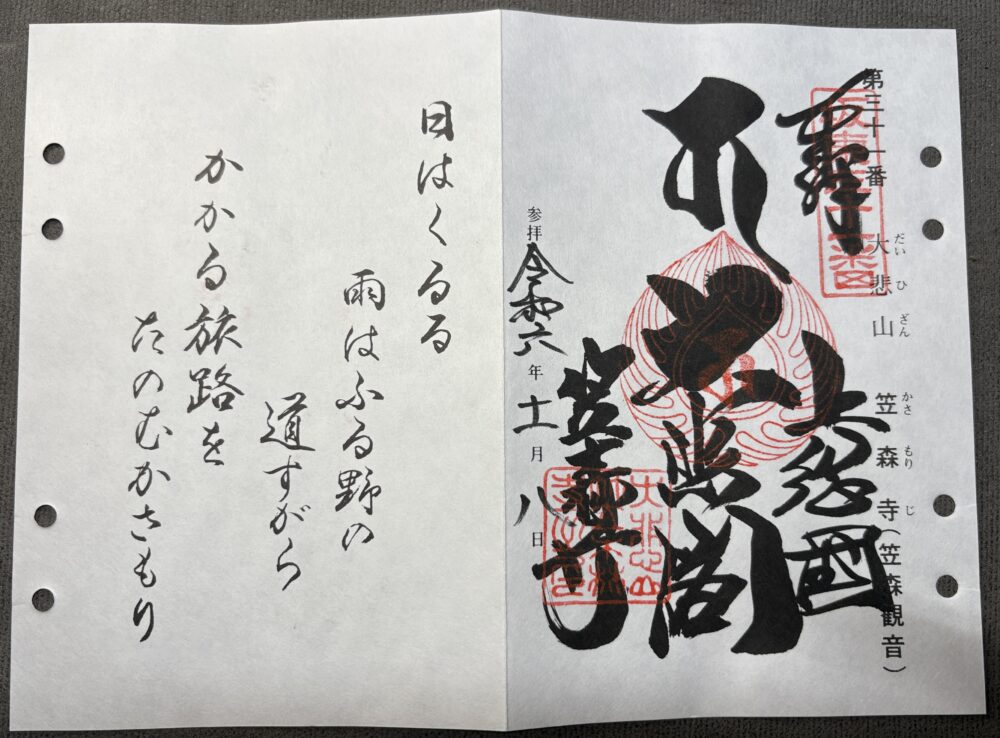 第三十一番 大悲山 笠森寺(笠森観音)
だい ひ ざん かさ もり じ
坂東三十一番
奉拝
上総国
照閣
笠森寺
参拝 令和六年十一月八日
日はくるる
雨はふる野の
道すがら
かかる旅路を
たのむかさもり